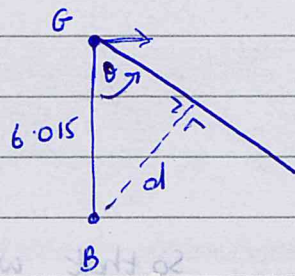 G
θ
6.015
d
B